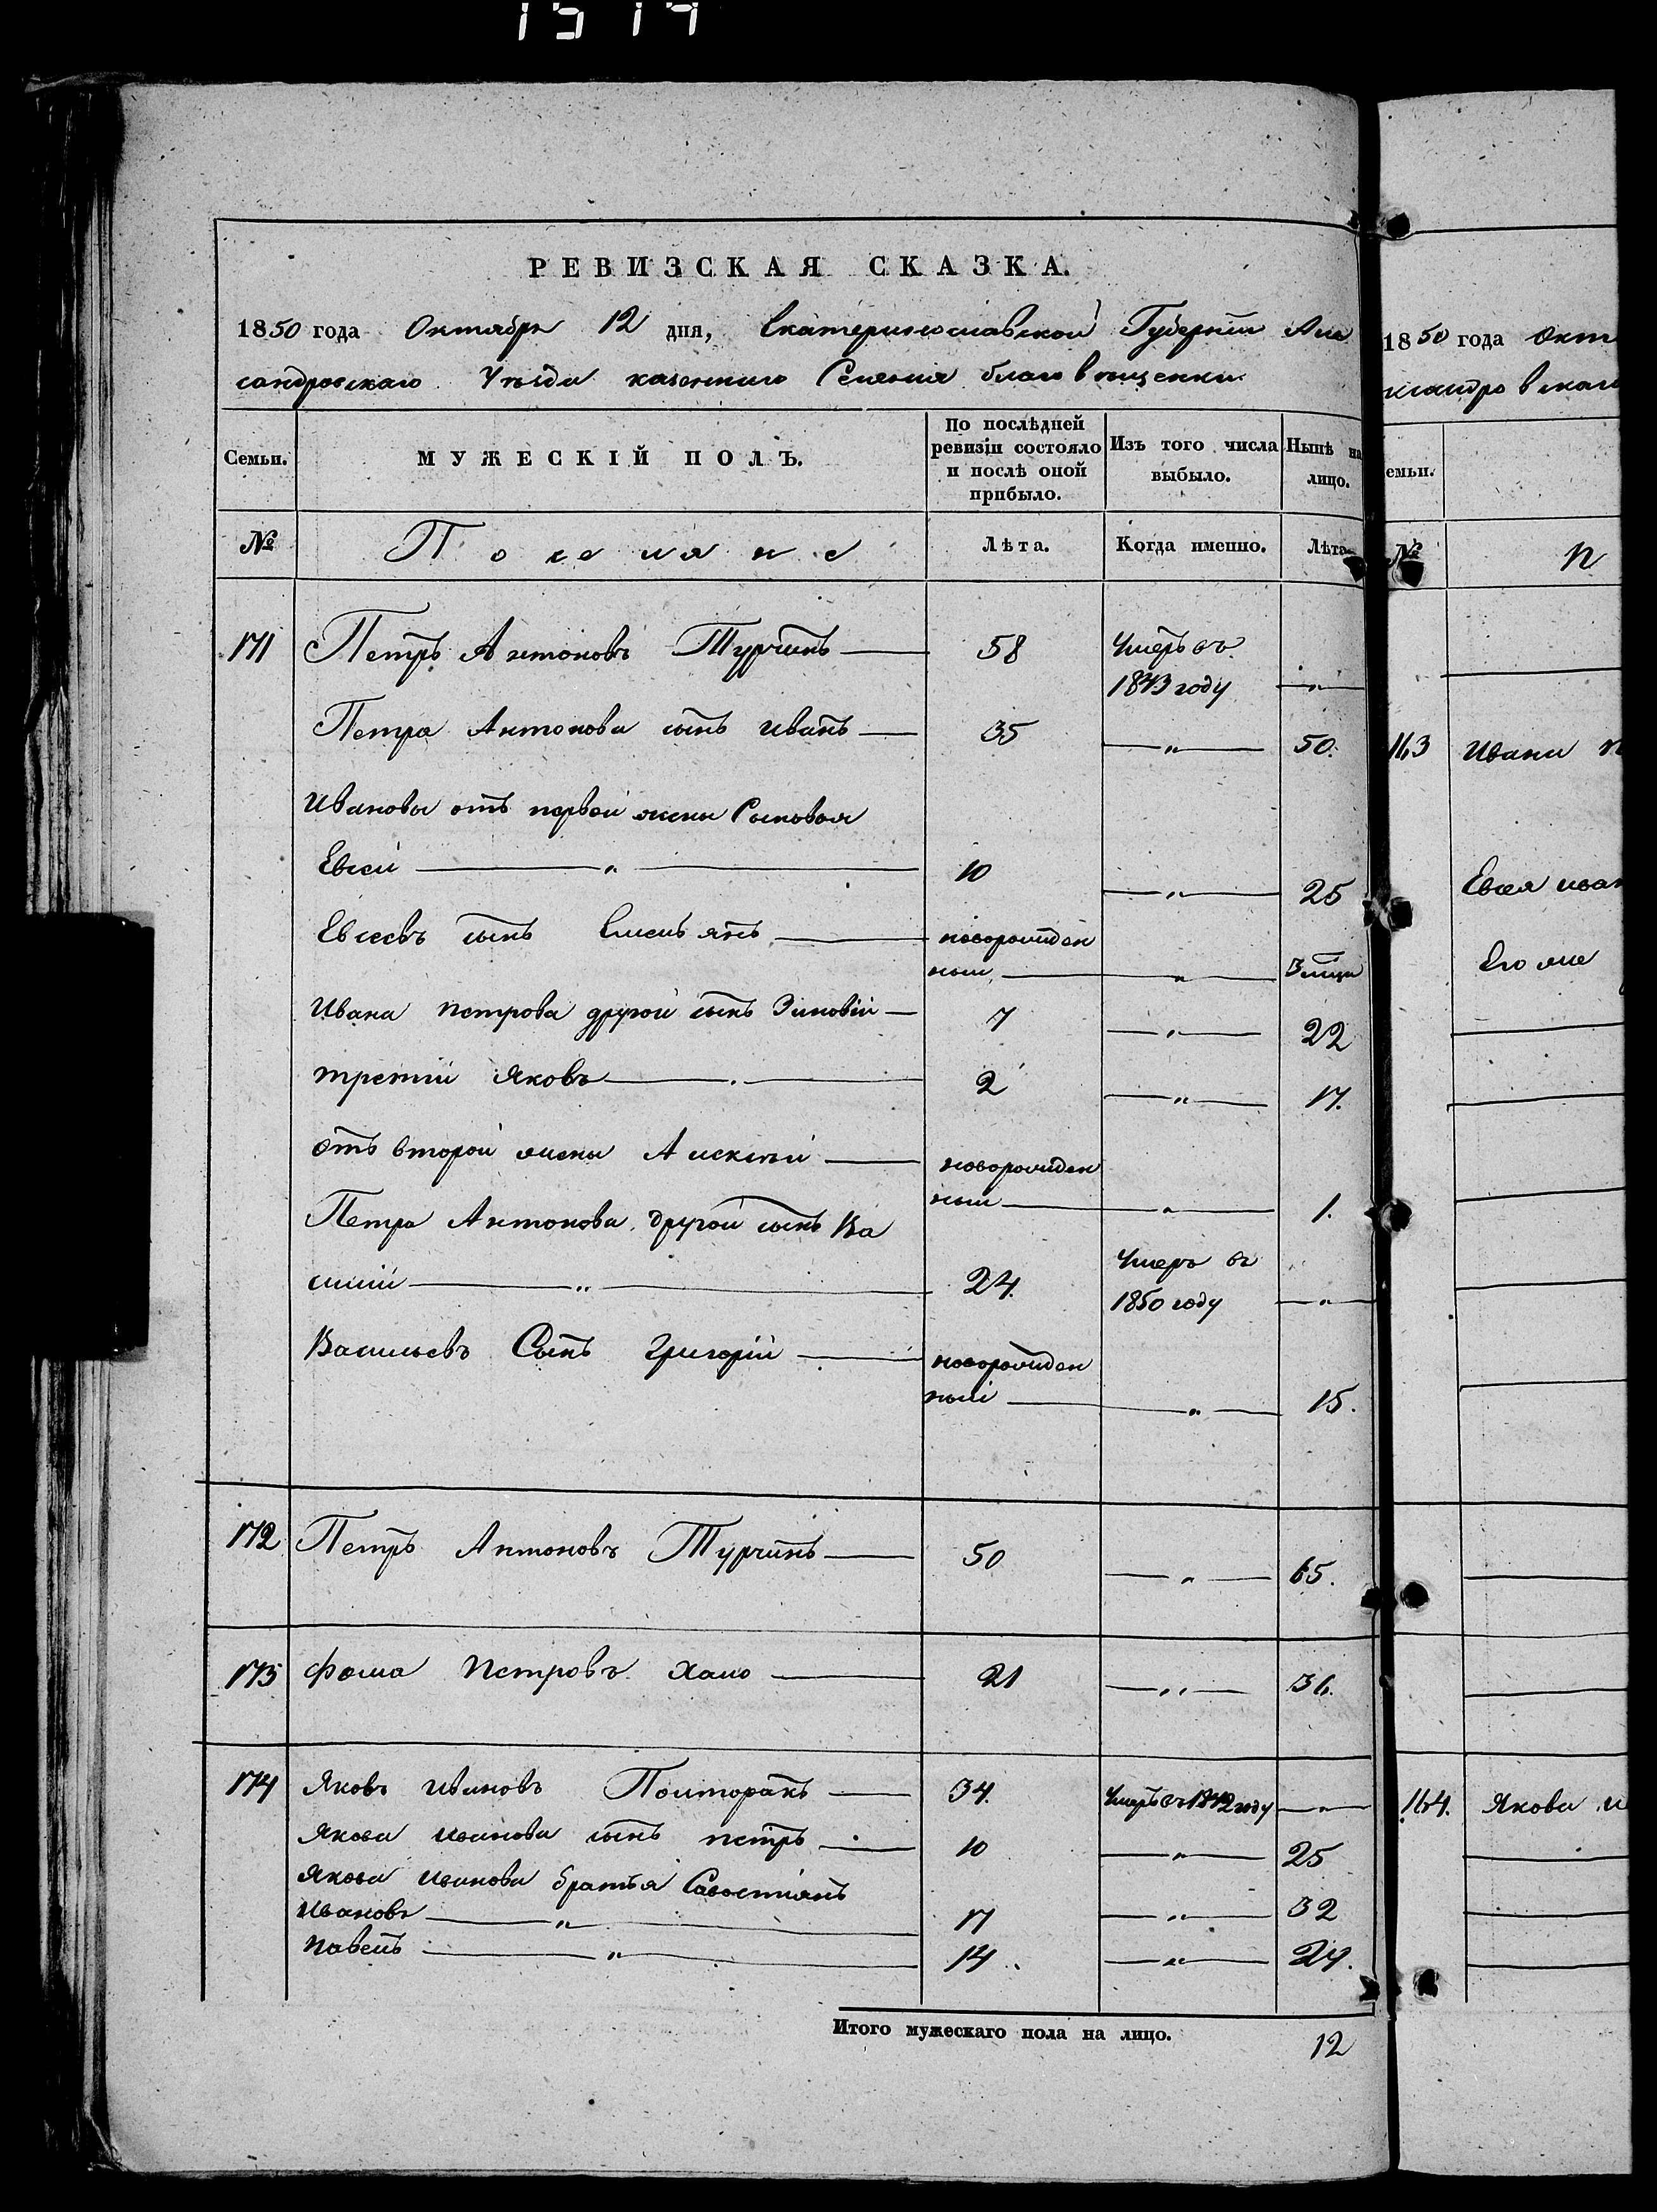 1514
РЕВИЗСКАЯ СКАЗКА.
1850 года Октября 12 дня, Екатеринославской Губерніи Але
сандровскаго Уѣзда казеннаго Селенія благовѣщенки
Семьи. МУЖЕСКІЙ ПОЛЪ. По послѣдней ревизіи состояло и послѣ оной прибыло. Изъ того числа выбыло. Нынѣ на лицо.
№ Поселяне Лѣта. Когда именно. Лѣта
171 Петръ Антоновъ Турчинъ — 58 Умеръ въ
1843 году — „ —
Петра Антонова сынъ Иванъ — 35 — „ — 50.
Ивановы отъ первой жены Сыновья
Евсей — „ — 10 — „ — 25
Евсеевъ сынъ Емельянъ — новорожден
ный — „ — 3 мѣця
Ивана Петрова другой сынъ Зиновій — 7 — „ — 22
третій Яковъ — . — 2 — „ — 17.
Отъ второй жены Алексѣй — новорожден
ный — „ — 1.
Петра Антонова другой сынъ Ва
силій — „ — 24. Умеръ въ
1850 году — „ —
Васильевъ Сынъ Григорій — новорожден
ный — „ — 15.
172 Петръ Антоновъ Турчинъ — 50 — „ — 65.
173 Фома Петровъ Хало — 21 — „ — 36.
174 Яковъ Ивановъ Полторакъ — 34. Умеръ въ 1842 году — „ —
Якова Иванова сынъ Петръ — 10 — „ — 25
Якова Иванова братья Савостіянъ
Ивановъ — „ — 17 — „ — 32
Павелъ — „ — 14 . — „ — 29.
Итого мужескаго пола на лицо. 12
1850 года Окт
ксандровскаго
емьи.
№ П
163 Ивана П
Евсея Иван
Его же
164. Якова И